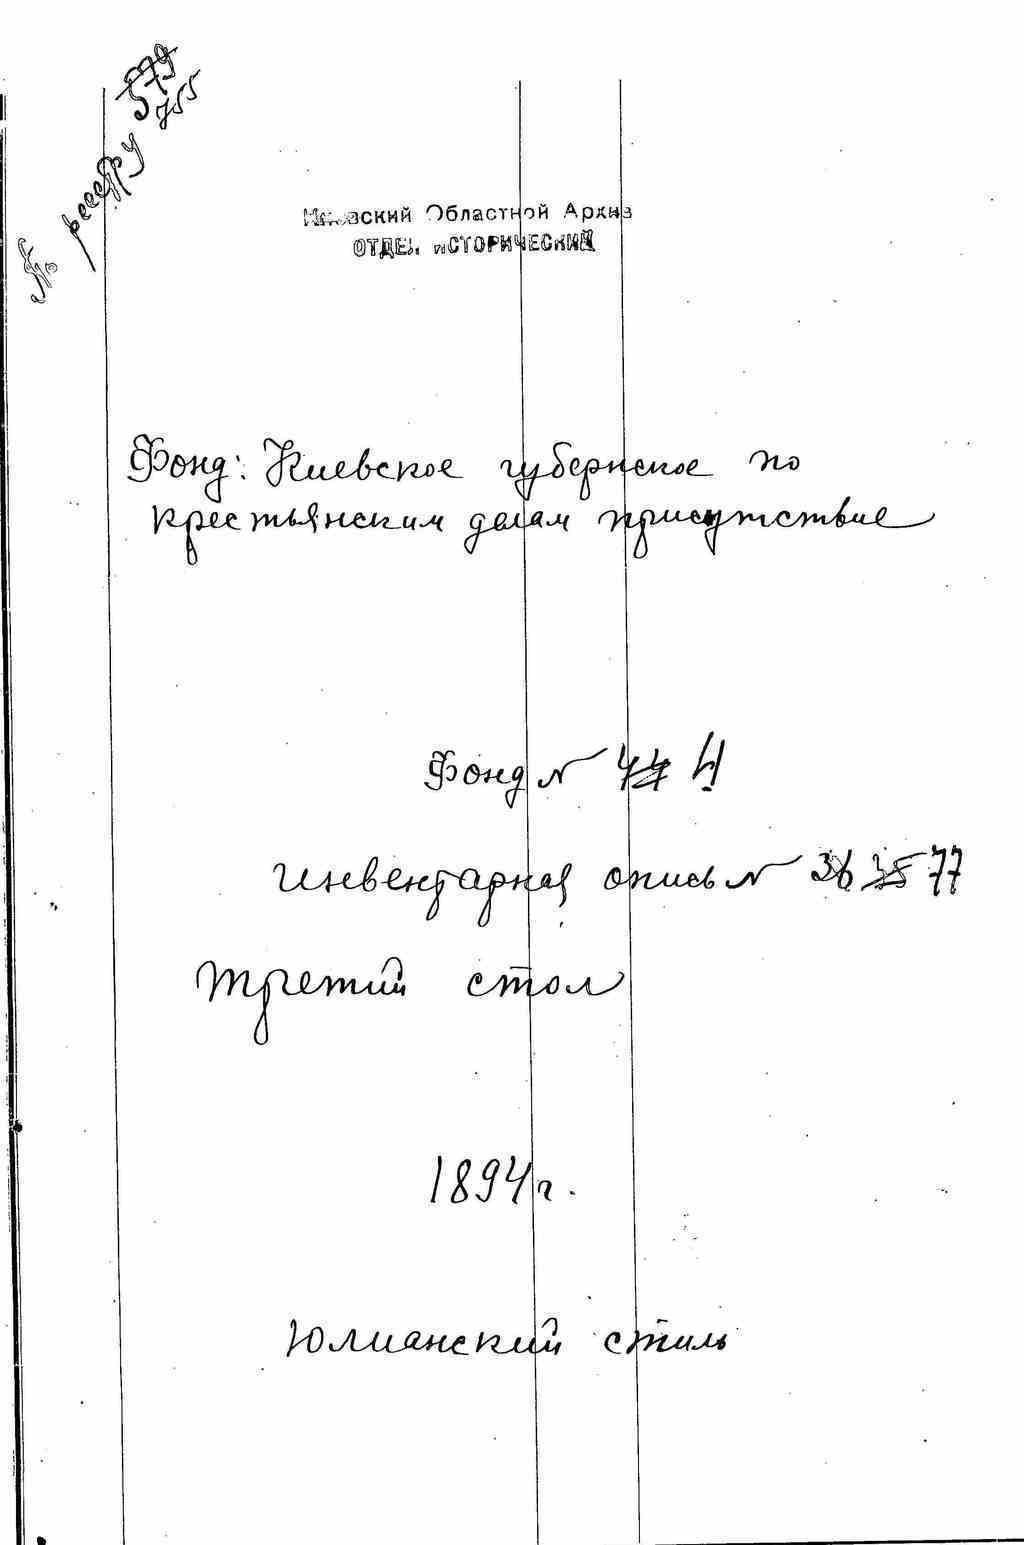 № реестру 579
755
Киевский Областной Архив
ОТДЕЛ ИСТОРИЧЕСКИЙ
Фонд: Киевское губернское по
крестьянским делам присутствие
Фонд № 44 4
Инвентарная опись № 36 35 77
Третий стол
1894 г.
Юлианский стиль